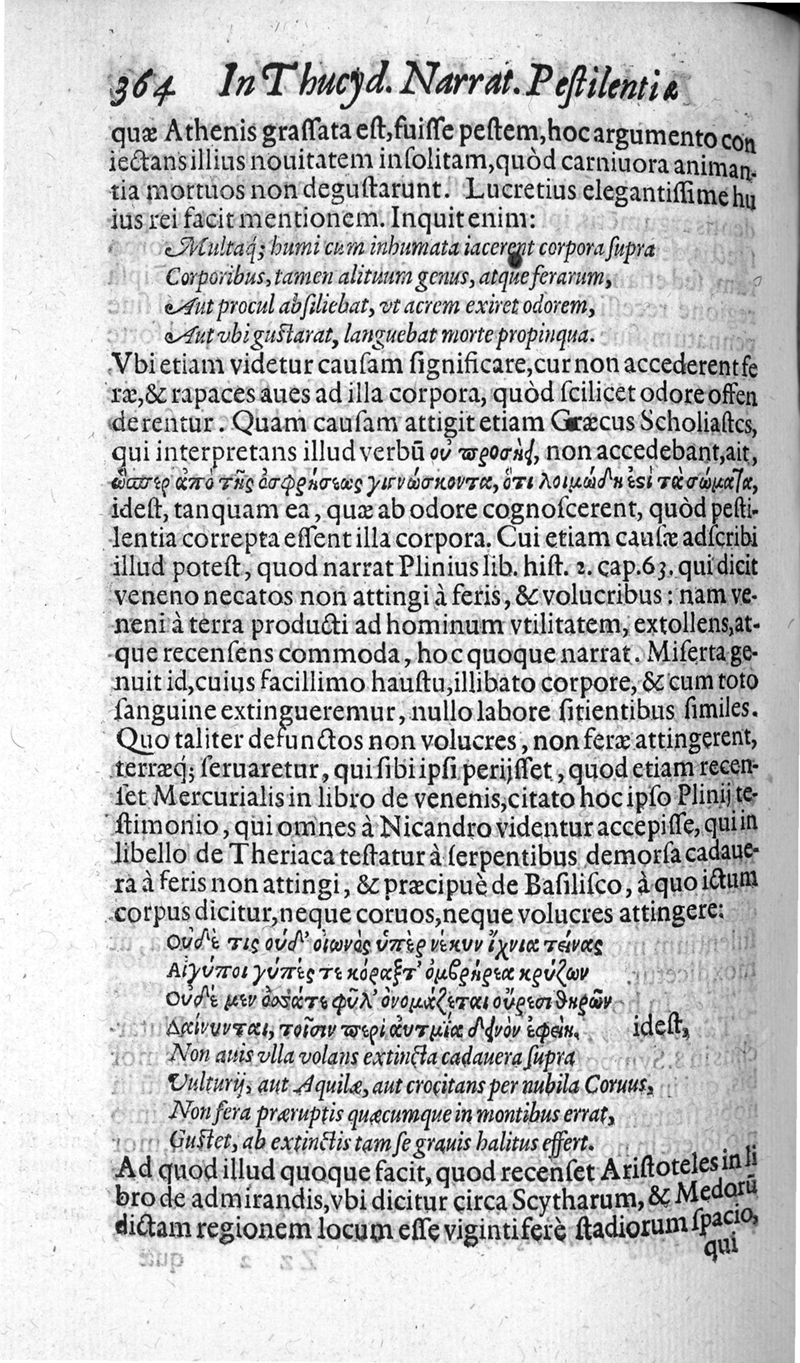 364 In Thucyd. Narrat. Pestilentiæ
quæ Athenis grassata est, fuisse pestem, hoc argumento con
iectans illius nouitatem insolitam, quòd carniuora animan-
tia mortuos non degustarunt. Lucretius elegantissime hu
ius rei facit mentionem. Inquit enim:
Multaq; humi cum inhumata iacerent corpora supra
Corporibus, tamen alituum genus, atque ferarum,
Aut procul absiliebat, vt acrem exiret odorem,
Aut vbi gustarat, languebat morte propinqua.
Vbi etiam videtur causam significare, cur non accederent fe
ræ, & rapaces aues ad illa corpora, quòd scilicet odore offen
derentur. Quam causam attigit etiam Græcus Scholiastes,
qui interpretans illud verbũ οὐ προσῄει, non accedebant, ait,
ὥσπερ ἀπὸ τῆς ὀσφρήσεως γινώσκοντα, ὅτι λοιμώδη ἐστὶ τὰ σώματα,
idest, tanquam ea, quæ ab odore cognoscerent, quòd pesti-
lentia correpta essent illa corpora. Cui etiam causæ adscribi
illud potest, quod narrat Plinius lib. hist. 2. cap. 63. qui dicit
veneno necatos non attingi à feris, & volucribus: nam ve-
neni à terra producti ad hominum vtilitatem, extollens, at-
que recensens commoda, hoc quoque narrat. Miserta ge-
nuit id, cuius facillimo haustu, illibato corpore, & cum toto
sanguine extingueremur, nullo labore sitientibus similes.
Quo taliter defunctos non volucres, non feræ attingerent,
terræq; seruaretur, qui sibi ipsi perijsset, quod etiam recen-
set Mercurialis in libro de venenis, citato hoc ipso Plinij te-
stimonio, qui omnes à Nicandro videntur accepisse, qui in
libello de Theriaca testatur à serpentibus demorsa cadaue-
ra à feris non attingi, & præcipuè de Basilisco, à quo ictum
corpus dicitur, neque coruos, neque volucres attingere:
Οὐδέ τις οὐδ' οἰωνὸς ὑπὲρ νέκυν ἴχνια τείνας
Αἰγύποι γύπες τε κόραξτ' ὀμβρήρεα κρύζων
Οὐδὲ μὲν ὁσσάτε φῦλ' ὀνομάζεται οὔρεσι θηρῶν
Δαίνυνται, τοῖσιν περὶ ἀυτμέα δεινὸν ἐφείη. idest,
Non auis vlla volans extincta cadauera supra
Vulturij, aut Aquilæ, aut crocitans per nubila Coruus,
Non fera præruptis quæcumque in montibus errat,
Gustet, ab extinctis tam se grauis halitus effert.
Ad quod illud quoque facit, quod recenset Aristoteles in li
bro de admirandis, vbi dicitur circa Scytharum, & Medorũ
dictam regionem locum esse viginti ferè stadiorum spacio,
qui